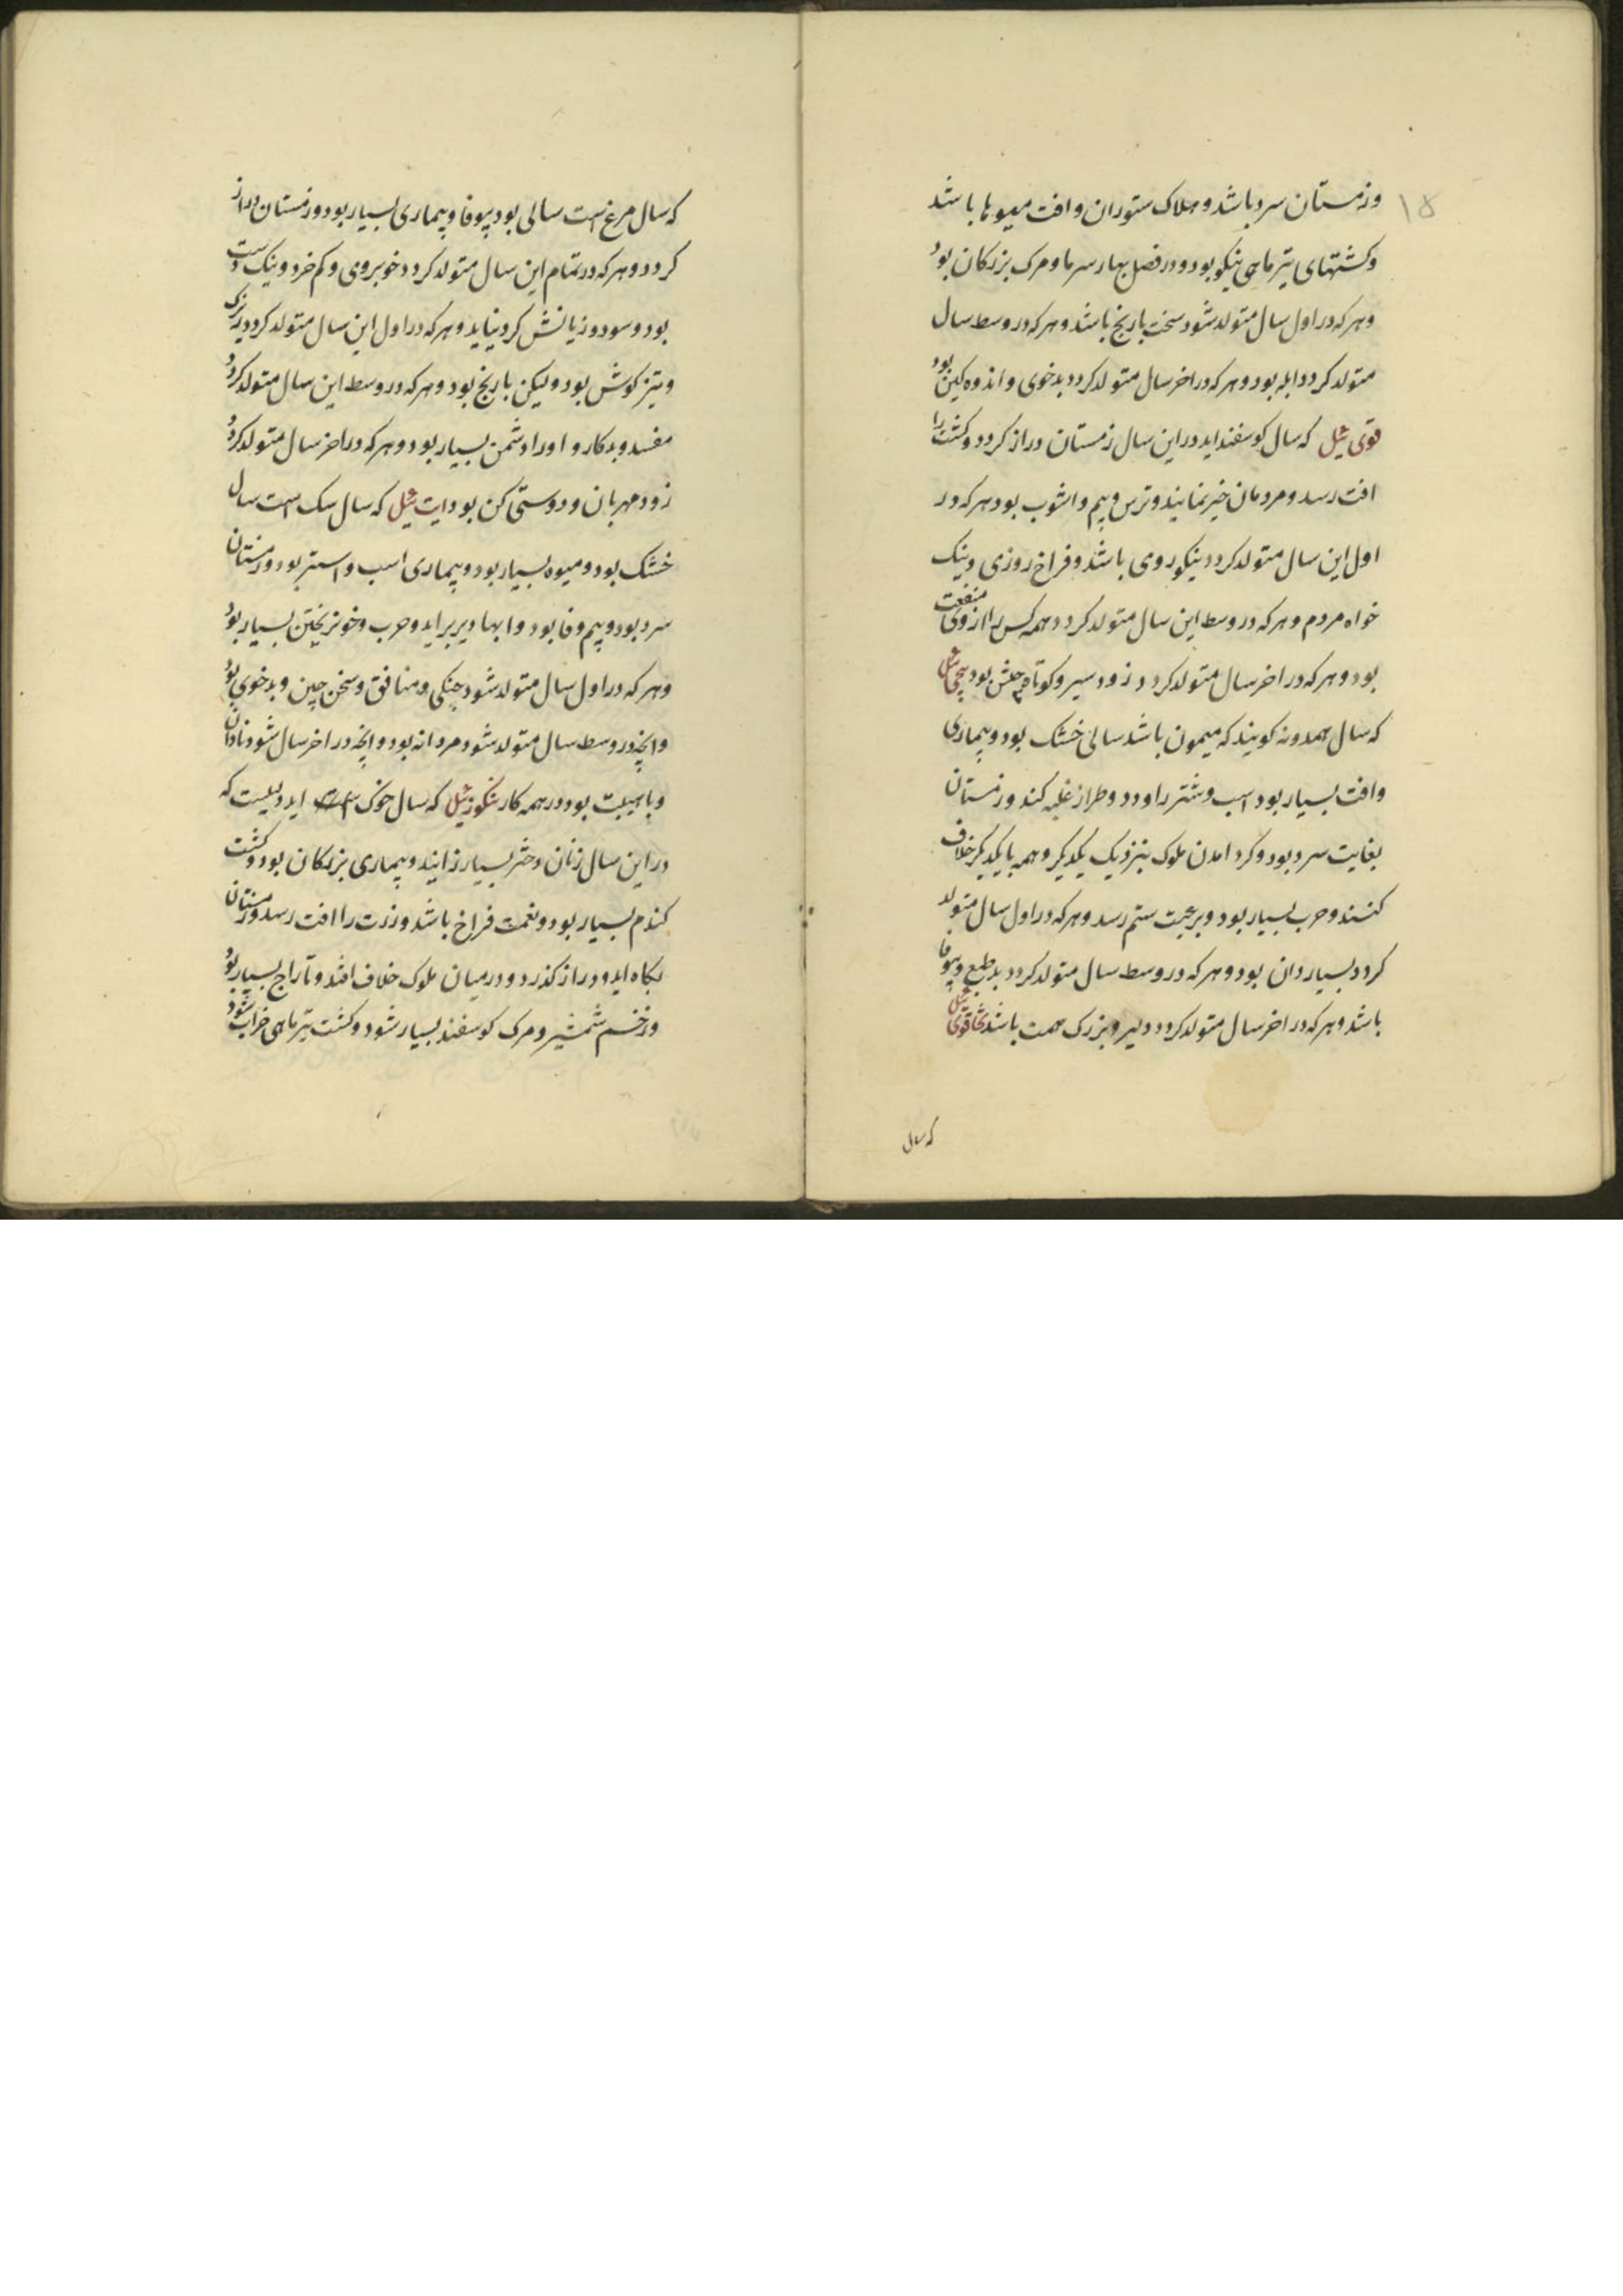 ۱۵
وزمستان سرد باشد و هلاک ستوران و افت میوها باشد
و کشتهای تیر ماهی نیکو بود و در فصل بهار سرما و مرک بزرکان بود
و هر که در اول سال متولد شود سخت بارنج باشد و هر که در وسط سال
متولد کردد ابله بود و هر که در اخر سال متولد کردد بدخوی و اندوه کین بود
قوی ئیل که سال کوسفند اید در این سال زمستان دراز کردد و کشت را
افت رسد و مردمان خیر نمایند و ترس و بیم و اشوب بود هر که در
اول این سال متولد کردد نیکو روی باشد و فراخ روزی و نیک
خواه مردم و هر که در وسط این سال متولد کردد همه کس را از وی منفعت
بود و هر که در اخر سال متولد کردد زود سیر و کوتاه بود پیچی ئیل
که سال حمدونه کویند که میمون باشد سالی خشک بود و بیماری
و افت بسیار بود اسب و شتر را و دزد و طرار غلبه کند و زمستان
بغایت سرد بود و کرد امدن ملوک بنزدیک یکدیکر و همه با یکدیکر خلاف
کنند و حرب بسیار بود و برعیت ستم رسد و هر که در اول سال متولد
کردد بسیار دان بود و هر که در وسط سال متولد کردد بد طبع و بیوفا
باشد و هر که در اخر سال متولد کردد دلیر و بزرک همت باشد تخاقوی ئیل
که سال
که سال مرغ است سالی بود بیوفا و بیماری بسیار بود و زمستان دراز
کردد و هر که در تمام این سال متولد کردد خوبروی و کم خرد و نیک دست
بود و سود و زیانش کرد نیاید و هر که در اول این سال متولد کردد زیرک
و تیز کوش بود و لیکن بارنج بود و هر که در وسط این سال متولد کردد
مفسد و بد کار و او را دشمن بسیار بود و هر که در اخر سال متولد کردد
زود مهربان و دوستی کن بود ایت ئیل که سال سک است سال
خشک بود و میوه بسیار بود و بیماری اسب و استر بود و زمستان
سرد بود و بیم وفا بود و ابها دیر براید و حرب و خونریختن بسیار بود
و هر که در اول سال متولد شود جنکی و منافق و سخن چین و بدخوی بود
و انچه در وسط سال متولد شود مردانه بود و انچه در اخر سال شود نادان
و باهیبت بود در همه کار تنکوز ئیل که سال خوک است اید دلیلست که
در این سال زنان دختر بسیار زایند و بیماری بزرکان بود و کشت
کندم بسیار بود و نعمت فراخ باشد و زرت را افت رسد و زمستان
بکاه اید و دراز کذرد و در میان ملوک خلاف افتد و تاراج بسیار بود
و زخم شمشیر و مرک کوسفند بسیار شود و کشت تیر ماهی خراب شود